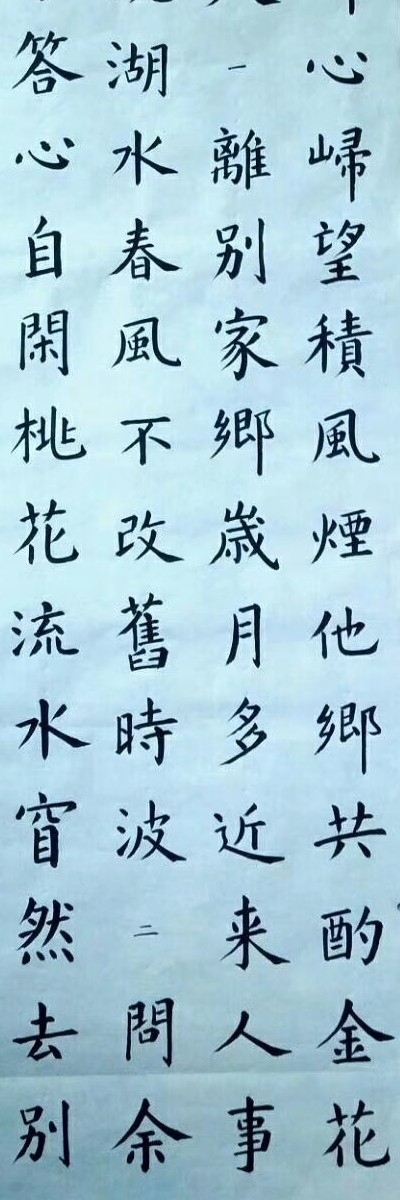 心歸望積風煙他鄉共酌金花
一離别家鄉歲月多近来人事
湖水春風不改舊時波二問余
答心自閑桃花流水窅然去别